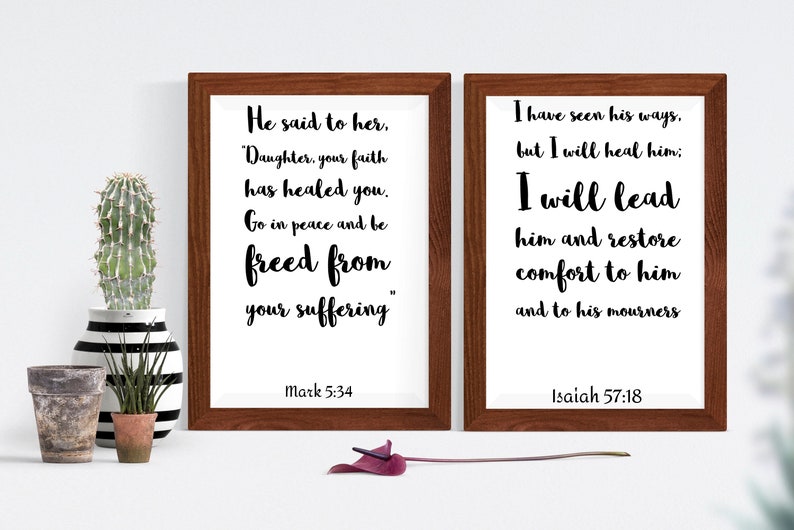 He said to her,
"Daughter, your faith
has healed you.
Go in peace and be
freed from
your suffering"
Mark 5:34
I have seen his ways,
but I will heal him;
I will lead
him and restore
comfort to him
and to his mourners
Isaiah 57:18